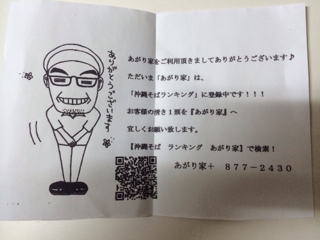 ありがとうございまする
あがり家をご利用頂きましてありがとうございます♪
ただいま「あがり家」は、
「沖縄そばランキング」に登録中です！！！
お客様の清き1票を『あがり家』へ
宜しくお願い致します。
【沖縄そば　ランキング　あがり家】で検索！
あがり家＋　877-2430